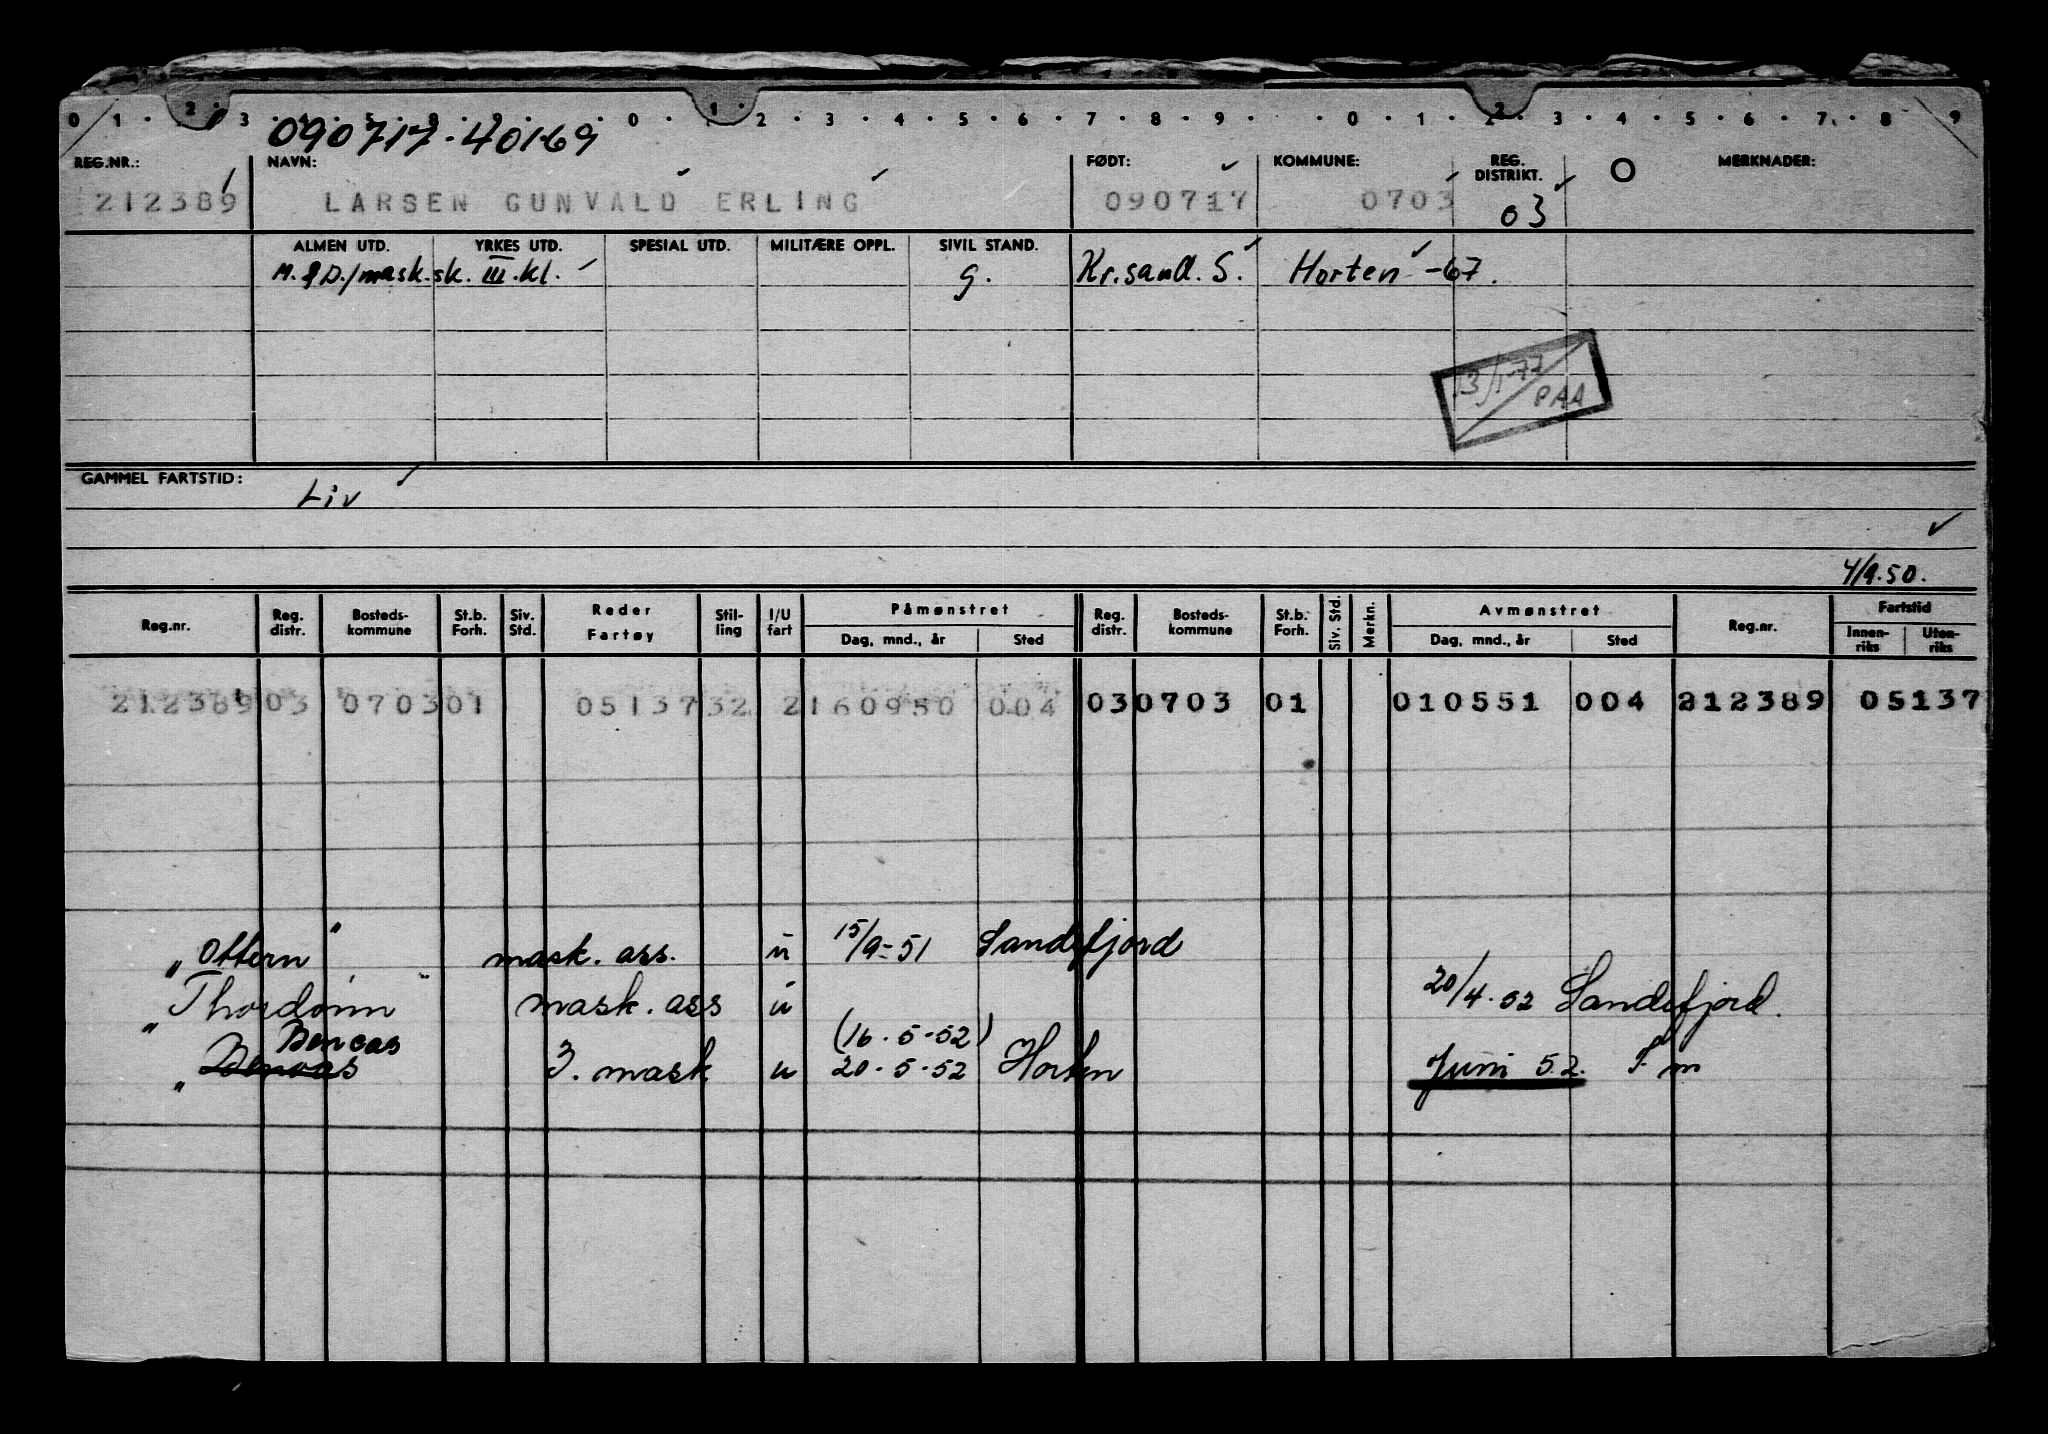 0 1 2 3 4 5 8 9 0 1 2 3 4 5 6 7 8 9 0 1 2 3 4 5 6 7 8 9
090717-40169
REG.NR.: NAVN: FØDT: KOMMUNE: REG. DISTRIKT. MERKNADER:
212389 LARSEN GUNVALD ERLING 090717 0703 03
ALMEN UTD. YRKES UTD. SPESIAL UTD. MILITÆRE OPPL. SIVIL STAND.
M. & D./mask.sk. III. kl. g. Kr.sand. S. Horten -67.
13/1-77
PAA
GAMMEL FARTSTID: Liv
4/9.50.
Reg.nr. Reg. distr. Bosteds- kommune St.b. Forh. Siv. Std. Reder Fartøy Stil- ling I/U fart Påmønstret Dag, mnd., år Sted Reg. distr. Bosteds- kommune St.b. Forh. Siv. Std. Merkn. Avmønstret Dag, mnd., år Sted Reg.nr. Fartstid Innen- riks Uten- riks
212389 03 0703 01 05137 32 2 160950 004 03 0703 01 010551 004 212389 05137
"Ottern" mask. ass. u 15/9-51 Sandefjord
"Thordønn" mask. ass u 20/4.52 Sandefjord.
Bencas (16.5-52)
" 3. mask u 20-5-52 Horten Juni 52. F m